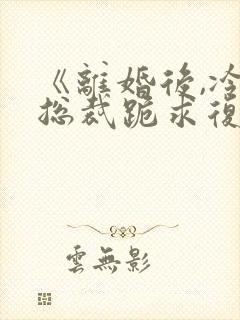 《離婚後,冷
总裁跪求復
雲無影